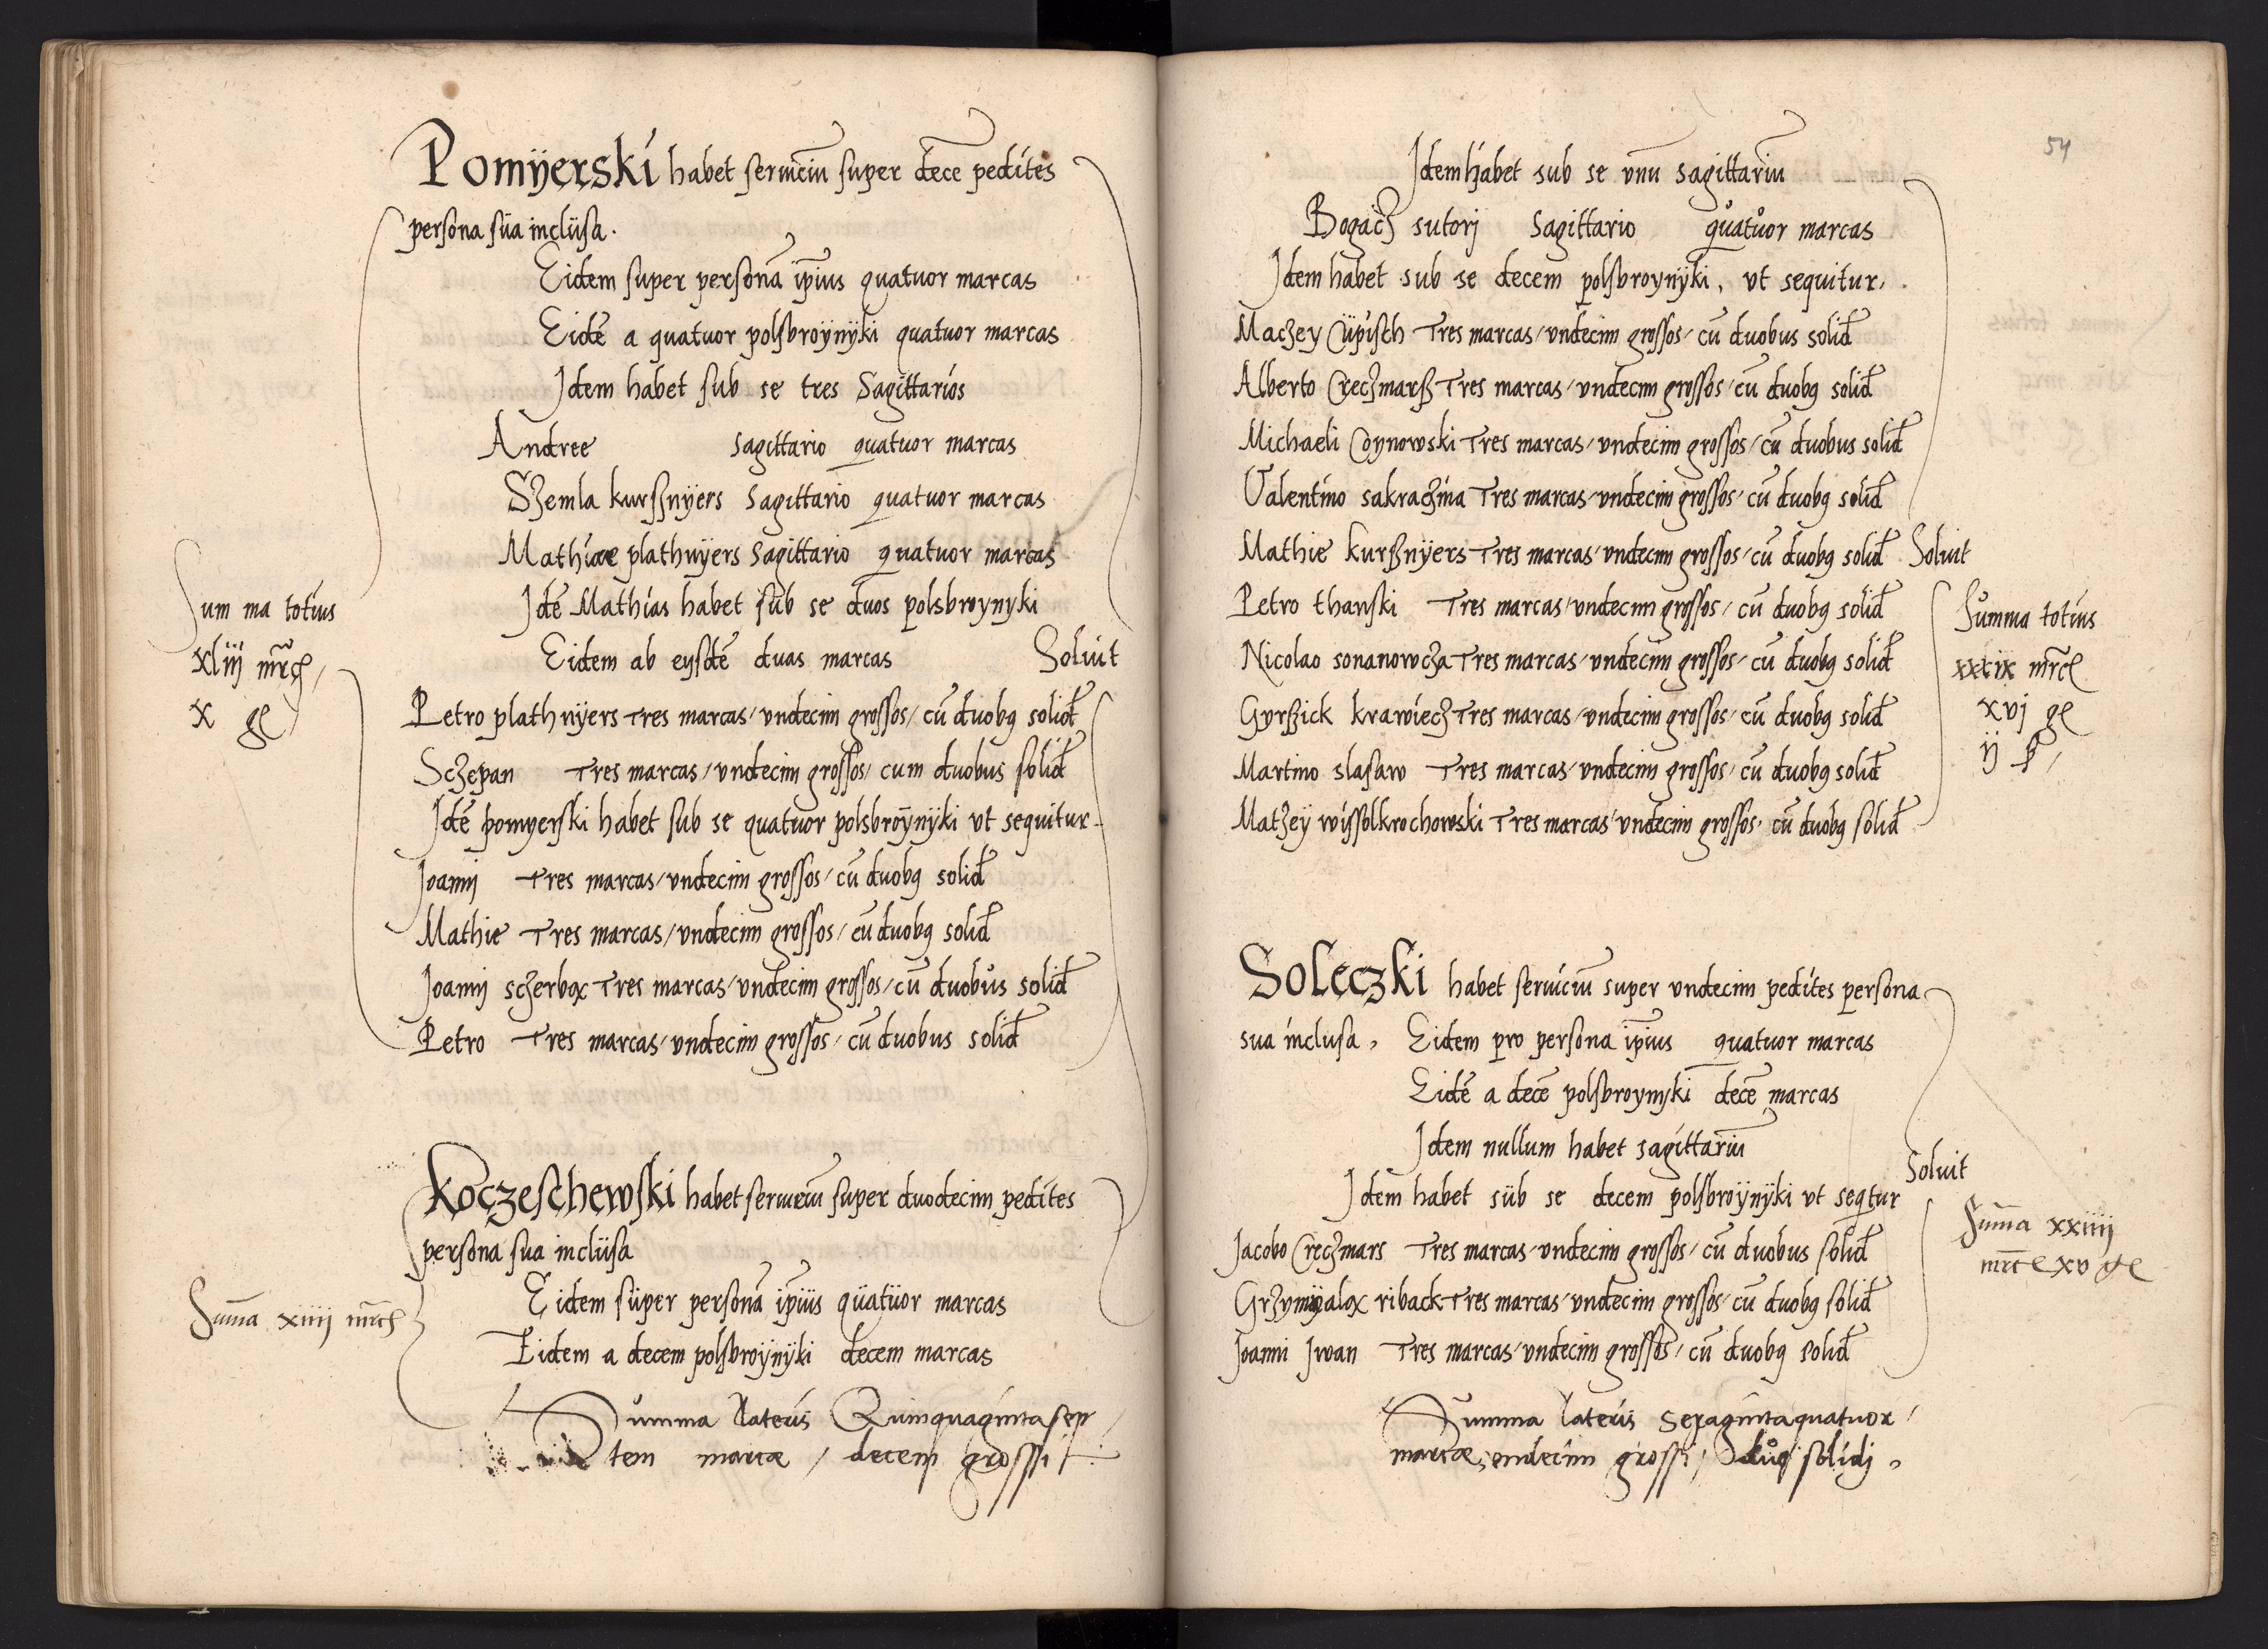 Pomÿerski habet seruiciū super dece pedites
persona sua inclusa.
Eidem super personā ip̄ius quatuor marcas
Eidē a quatuor polsbroÿnÿki quatuor marcas
Idem habet sub se tres Sagittarios
Andree sagittario quatuor marcas
Szemla kursznÿers sagittario quatuor marcas
Mathiae plathnÿers sagittario quatuor marcas
Idē Mathias habet sub se duos polsbroynyki
Eidem ab eysdē duas marcas Soluit
Summa totius
xliij mrc̄
x g
Petro plathnÿers Tres marcas / vndecim grossos / cū duobq solid
Sczepan Tres marcas / vndecim grossos / cum duobus solid
Idē pomyerski habet sub se quatuor polsbroÿnÿki vt sequitur
Joannj Tres marcas / vndecim grossos / cū duobq solid
Mathie Tres marcas / vndecim grossos / cū duobq solid
Joannj sczerbox Tres marcas / vndecim grossos / cū duobus solid
Petro Tres marcas / vndecim grossos / cū duobus solid
Koczeschewski habet seruiciū super duodecim pedites
persona sua inclusa
Eidem super personā ip̄ius quatuor marcas
Eidem a decem polsbroÿnÿki decem marcas
Sum̄a xiiij mrc̄
Summa lateris Quinquaginta sep
tem marcæ / decem grossi
54
Idem habet sub se vnū sagittariū
Bogacz sutorj Sagittario quatuor marcas
Idem habet sub se decem polsbroynÿki, vt sequitur.
Maczey Cüpisch Tres marcas / vndecim grossos / cū duobus solid
Alberto Creczmarsz Tres marcas / vndecim grossos / cū duobq solid
Michaeli Coynowski Tres marcas / vndecim grossos / cū duobus solid
Valentino sakraczina Tres marcas / vndecim grossos / cū duobq solid
Mathie kursznÿers Tres marcas / vndecim grossos / cū duobq solid Soluit
Petro thanski Tres marcas / vndecim grossos / cū duobq solid
Nicolao sonanowcza Tres marcas / vndecim grossos / cū duobq solid
Gyrszick krawiecz Tres marcas / vndecim grossos / cū duobq solid
Martino slasaw Tres marcas / vndecim grossos / cū duobq solid
Matzeÿ wÿssolkrochowski Tres marcas / vndecim grossos / cū duobq solid
Summa totius
xxxix mrc̄
xvj g
ij
Soleczki habet seruiciū super vndecim pedites persona
sua inclusa, Eidem pro persona ip̄ius quatuor marcas
Eidē a decē polsbroynyki decē marcas
Idem nullum habet sagittariū
Soluit
Idem habet sub se decem polsbroÿnÿki vt seqtur
Jacobo Creczmars Tres marcas / vndecim grossos / cū duobus solid
Grzymyalox riback Tres marcas / vndecim grossos / cū duobq solid
Joanni Iwan Tres marcas / vndecim grossos / cū duobq solid
Sum̄a xxiiij
mrc̄ xv g
Summa lateris Sexaginta quatuor /
marcæ, vndecim grossi, duo solidj.